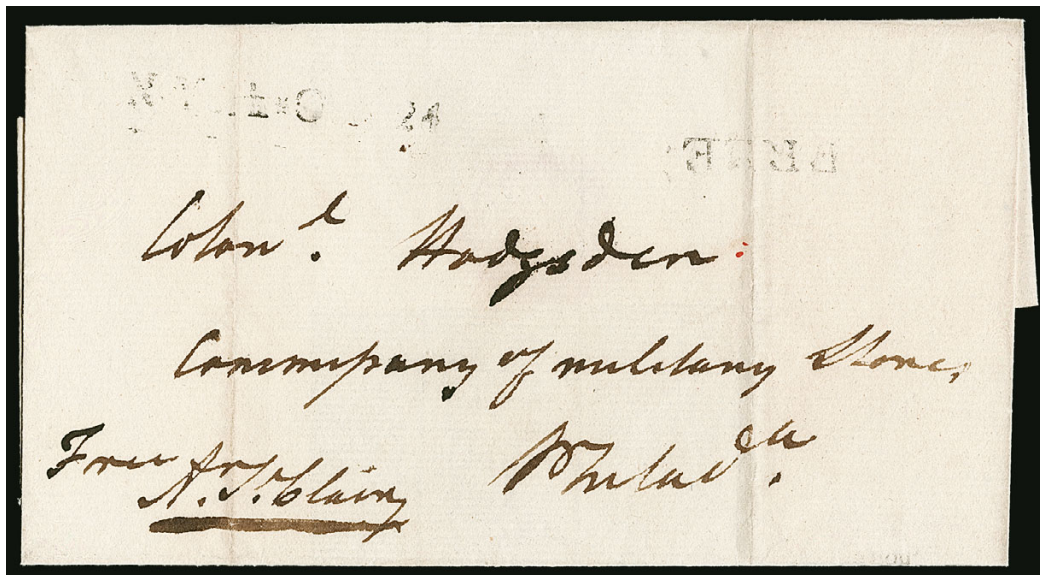 FREE
Colonl. Hodgsden
Commissary of military Stores
Philada.
Free Ar. St. Clair